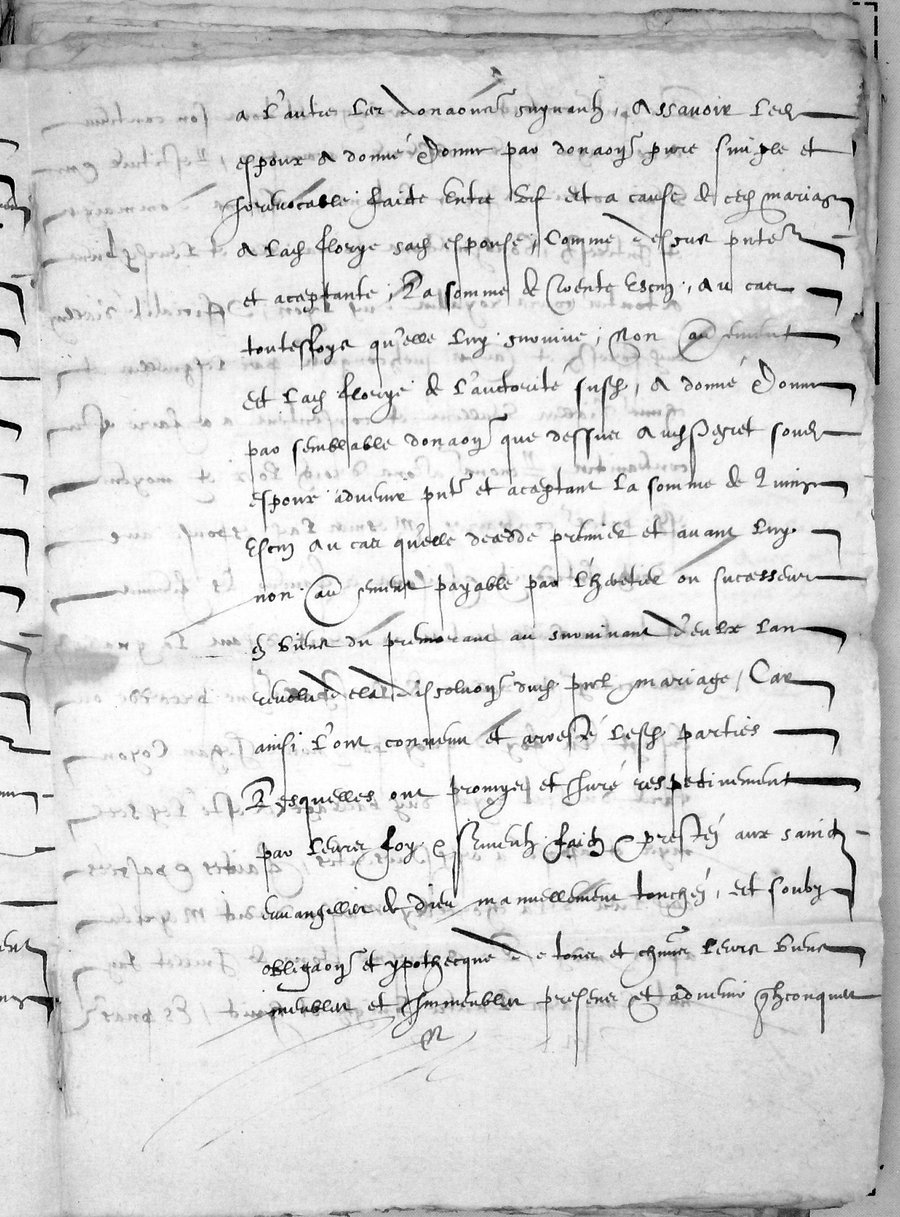 a l'autre les donaōns suyvantz, Assavoir led
espoux a donné Donne par donaōn pure simple et
Irrevocable faicte entre vif et a cause de ced mariage
A lad florye sad espouse, Comme dessus pnte
et aceptante, La somme de trente Escuz, Au cas
toutesfoys qu'elle luy survive, Non aultrement
Et lad florye de l'autorité susd, a donné Donne
par semblable donaōn que dessus Aud soud
espoux advenir pnt et aceptant la somme de Quinze
Escuz Au cas qu'elle decedde premier et avant luy
non aultrement payable par l'heretier ou sucesseur
es biens du premorant au survivant d'eulx l'an
revolu de la dissoluōn dud pnt mariage, Car
ainsi l'ont convenu et arresté lesd parties
Lesquelles ont promys et Juré respetivement
par leurs foy & serments faictz & prestez aux sainctz
evangilles de dieu manuellement touchez, et soubz
obligaōn et ypothecque de tous et chūns leurs biens
meubles et Immeubles presens et advenir qlzconques